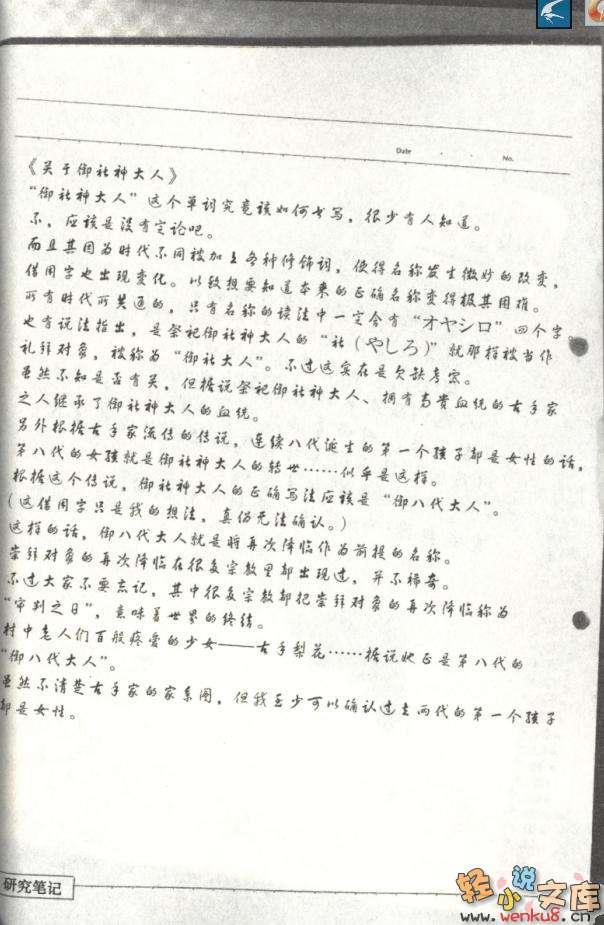 Date . . No.
《关于御社神大人》
“御社神大人”这个单词究竟该如何书写，很少有人知道。
不，应该是没有定论吧。
而且其因为时代不同被加上各种修饰词，使得名称发生微妙的改变，
借用字也出现变化。以致想要知道本来的正确名称变得极其困难。
所有时代所共通的，只有名称的读法中一定含有“オヤシロ”四个字。
也有说法指出，是祭祀御社神大人的“社(やしろ)”就那样被当作
礼拜对象，被称为“御社大人”。不过这实在是欠缺考察。
虽然不知是否有关，但据说祭祀御社神大人、拥有高贵血统的古手家
之人继承了御社神大人的血统。
另外根据古手家流传的传说，连续八代诞生的第一个孩子都是女性的话，
第八代的女孩就是御社神大人的转世……似乎是这样。
根据这个传说，御社神大人的正确写法应该是“御八代大人”。
(这借用字只是我的想法，真伪无法确认。)
这样的话，御八代大人就是将再次降临作为前提的名称。
崇拜对象的再次降临在很多宗教里都出现过，并不稀奇。
不过大家不要忘记，其中很多宗教都把崇拜对象的再次降临称为
“审判之日”，意味着世界的终结。
村中老人们百般疼爱的少女——古手梨花……据说她正是第八代的
“御八代大人”。
虽然不清楚古手家的家系图，但我至少可以确认过去两代的第一个孩子
都是女性。
研究笔记
轻小说文库
www.wenku8.cn